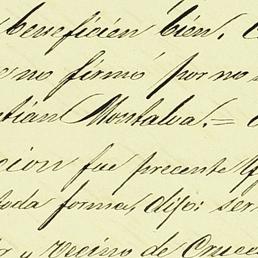 beneficien bien.
no firmó por no
tian Montalva. =
cion fue precente
toda forma, dijo: ser
y Vecino de Cruce